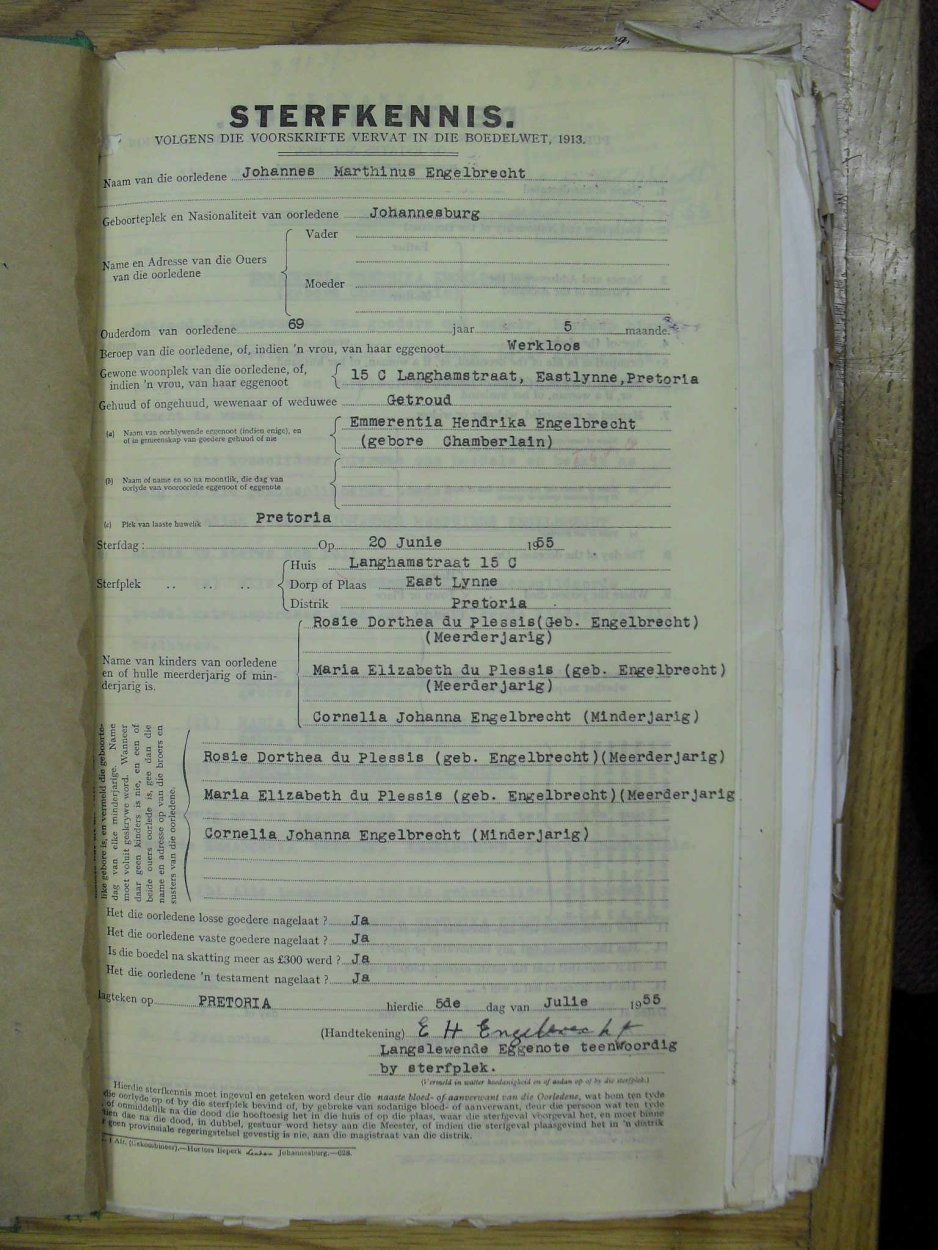 STERFKENNIS.
VOLGENS DIE VOORSKRIFTE VERVAT IN DIE BOEDELWET, 1913.
Naam van die oorledene Johannes Marthinus Engelbrecht
Geboorteplek en Nasionaliteit van oorledene Johannesburg
Name en Adresse van die Ouers van die oorledene
Vader
Moeder
Ouderdom van oorledene 69 jaar 5 maande.
Beroep van die oorledene, of, indien 'n vrou, van haar eggenoot Werkloos
Gewone woonplek van die oorledene, of,
indien 'n vrou, van haar eggenoot
15 C Langhamstraat, Eastlynne, Pretoria
Gehuud of ongehuud, wewenaar of weduwee Getroud
(a) Naam van oorblywende eggenoot (indien enige), en
of in gemeenskap van goedere gehuud of nie
Emmerentia Hendrika Engelbrecht
(gebore Chamberlain)
(b) Naam of name en so na moontlik, die dag van
oorlyde van vooroorlede eggenoot of eggenote
(c) Plek van laaste huwelik Pretoria
Sterfdag: Op 20 Junie 1955
Sterfplek .. .. ..
Huis Langhamstraat 15 C
Dorp of Plaas East Lynne
Distrik Pretoria
Name van kinders van oorledene
en of hulle meerderjarig of min-
derjarig is.
Rosie Dorthea du Plessis(Geb. Engelbrecht)
(Meerderjarig)
Maria Elizabeth du Plessis (geb. Engelbrecht)
(Meerderjarig)
Cornelia Johanna Engelbrecht (Minderjarig)
like gebore is, en vermeld die geboorte-
dag van elke minderjarige. Name
moet voluit geskrywe word. Wanneer
daar geen kinders is nie, en een of
beide ouers oorlede is, gee dan die
name en adresse op van die broers en
susters van die oorledene.
Rosie Dorthea du Plessis (geb. Engelbrecht)(Meerderjarig)
Maria Elizabeth du Plessis (geb. Engelbrecht)(Meerderjarig
Cornelia Johanna Engelbrecht (Minderjarig)
Het die oorledene losse goedere nagelaat ? Ja
Het die oorledene vaste goedere nagelaat ? Ja
Is die boedel na skatting meer as £300 werd ? Ja
Het die oorledene 'n testament nagelaat ? Ja
agteken op PRETORIA hierdie 5de dag van Julie 1955
(Handtekening) E H Engelbrecht
Langslewende Eggenote teenwoordig
by sterfplek.
(Vermeld in watter hoedanigheid en of aadan op of by die sterfplek.)
Hierdie sterfkennis moet ingevul en geteken word deur die naaste bloed- of aanverwant van die Oorledene, wat hom ten tyde
die oorlyde op of by die sterfplek bevind of, by gebreke van sodanige bloed- of aanverwant, deur die persoon wat ten tyde
of onmiddellik na die dood die hooftoesig het in die huis of op die plaas, waar die sterfgeval voorgeval het, en moet binne
tien dae na die dood, in dubbel, gestuur word hetsy aan die Meester, of indien die sterfgeval plaasgevind het in 'n distrik
geen provinsiale regeringstelsel gevestig is nie, aan die magistraat van die distrik.
1 Afr. (Gekombineer).—Hortors Beperk Johannesburg.—628.